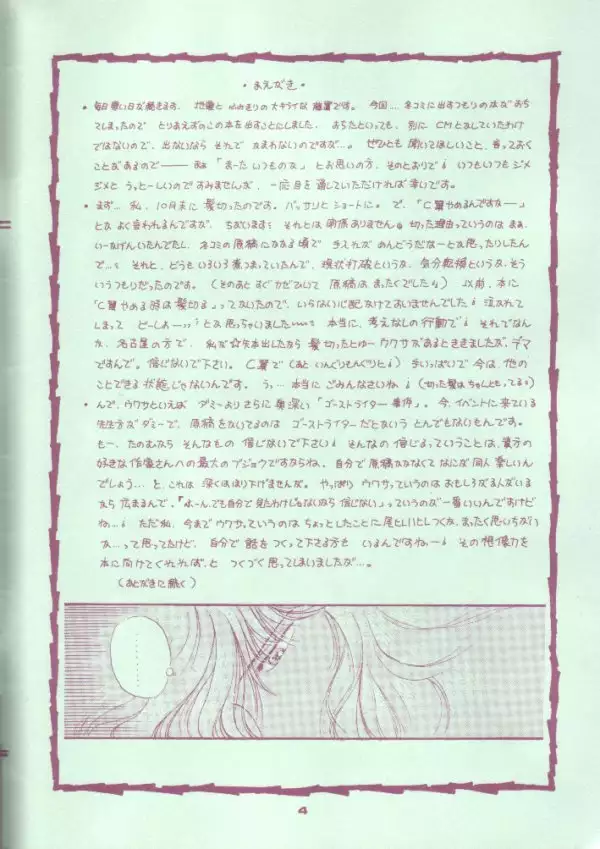 ・まえがき・
・毎日寒い日が続きます、地震と の大キライな です。今回…、ネコミに出すつもりの本がおち
てしまったので とりあえずのこの本を出すことにしました、おちたといっても、別に CMとかしていたわけ
ではないので、出ないなら それで かまわないのですが…。ぜひとも 聞いてほしいこと、言っておく
ことがあるので――― 「まーた いつものか」とお思いの方、そのとおりで いつもいつもジメ
ジメと うっとーしいのですみませんが、一応目を通していただければ幸いです。
・まず… 私、10月末に髪切ったのです。バッサリとショートに。で、「C翼やめるんですかー」
とか よく言われるんですが、ちがいます それとは関係ありません 切った理由っていうのは まぁ、
いーかげんいたんでたし、ネコミの原稿にかかる頃で 手入れが めんどうだなーとか思ったりしたん
で…、それと、どうも いろいろ煮つまっていたんで、現状打破というか、気分転換というか、そう
いうつもりだったのです。(そのあと すぐ かぜひいて 原稿は まったくでした) 以前、本に
「C翼やめる時は髪切る」ってかいたので、いらない心配かけてすいませんでした 泣かれて
しまって どーしよー とか思っちゃいました 本当に、考えなしの行動で それでなん
か、名古屋の方で、私が☆矢本出したなら 髪切ったとゆー ウワサがあるとききましたが、デマ
ですんで。信じないで下さい。C翼で(あと いんぐりもんぐりと) 手いっぱいで 今は、他の
ことできる状態じゃないんです。うっ…本当にごめんなさいね (切った髪はちゃんともってる)
・んで、ウワサといえば ダミーよりさらに奥深い「ゴーストライター事件」。今、イベントに来ている
先生方が ダミーで、原稿をかいてるのは ゴーストライターだという とんでもないもんです。
もー、たのむから そんなもの 信じないで下さい そんなの 信じるっていうことは、貴方の
好きな作家さんへの最大のブジョクですからね。自分で原稿かかなくて なにが同人 楽しいん
でしょう… を、これは 深くほり下げませんが。やっぱり ウワサっていうのは おもしろがる人がいる
なら 広まるんで、「ふーん、でも自分で見たわけじゃないなら 信じない」っていうのが 一番いいんですけど
ね…、ただ私、今まで ウワサっていうのは ちょっとしたことに尾ヒレハヒレつくか、まったく思いちがい
か…って思ってたけど、自分で 話をつくって下さる方も いるんですねー その想像力を
本に向けてくれれば、と つくづく思ってしまいましたが…。
(あとがきに続く)
………
4